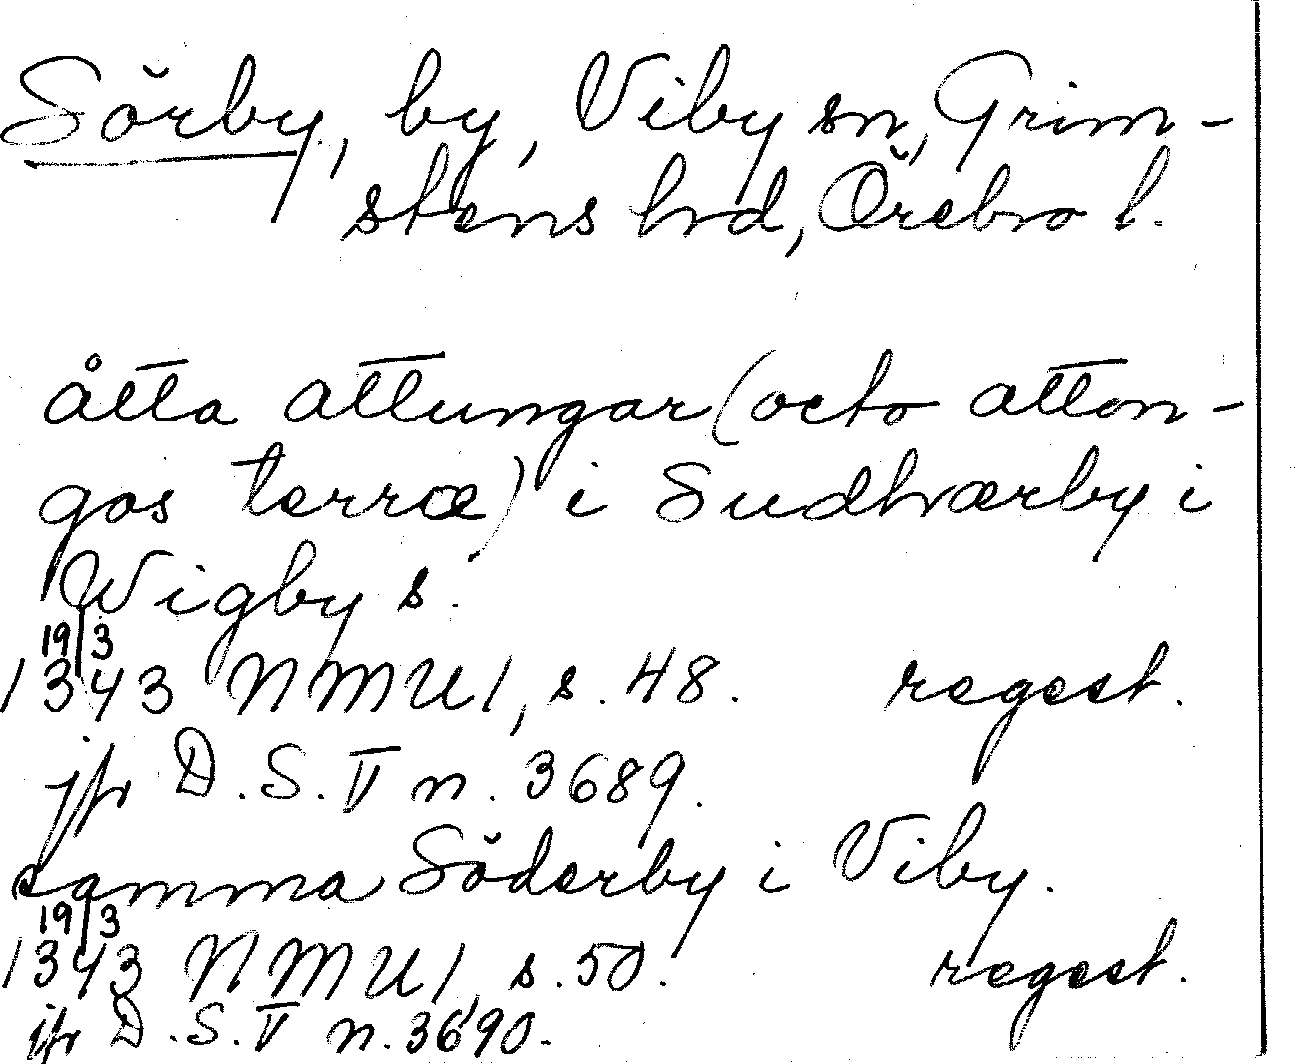 Sörby, by, Viby sn, Grim-
stens hrd, Örebro l.
åtta attungar (octo atton-
gos terræ) i Sudhrærby i
Wigby s.
19/3
1343 NMU 1, s. 48. regest.
jfr D.S. V n. 3689.
samma Söderby i Viby.
19/3
1343 NMU 1, s. 50. regest.
jfr D.S. V n. 3690.